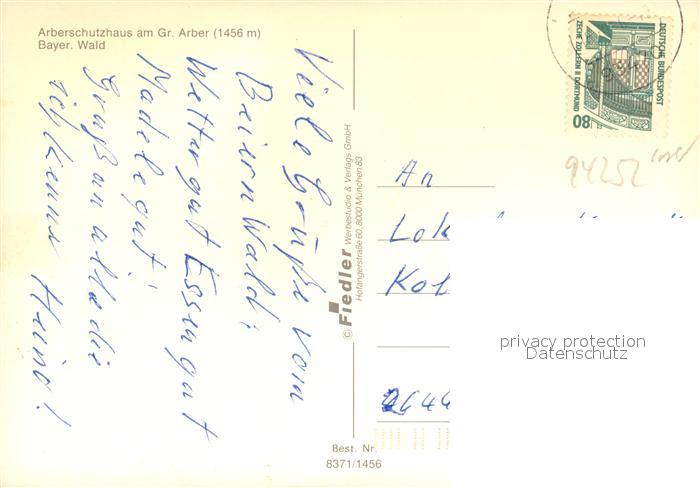 Arberschutzhaus am Gr. Arber (1456 m)
Bayer. Wald
Viele Grüße vom
Beiern Wald!
Wetter gut Essen gut
Madele gut!
Gruß an alle die
ich kenne Heino!
© Fiedler Werbestudio & Verlags GmbH
Hofangerstraße 60, 8000 München 83
Best. Nr.
8371/1456
DEUTSCHE BUNDESPOST
ZECHE ZOLLERN II DORTMUND
80
94252
An
Lok
Kol
2644
privacy protection
Datenschutz